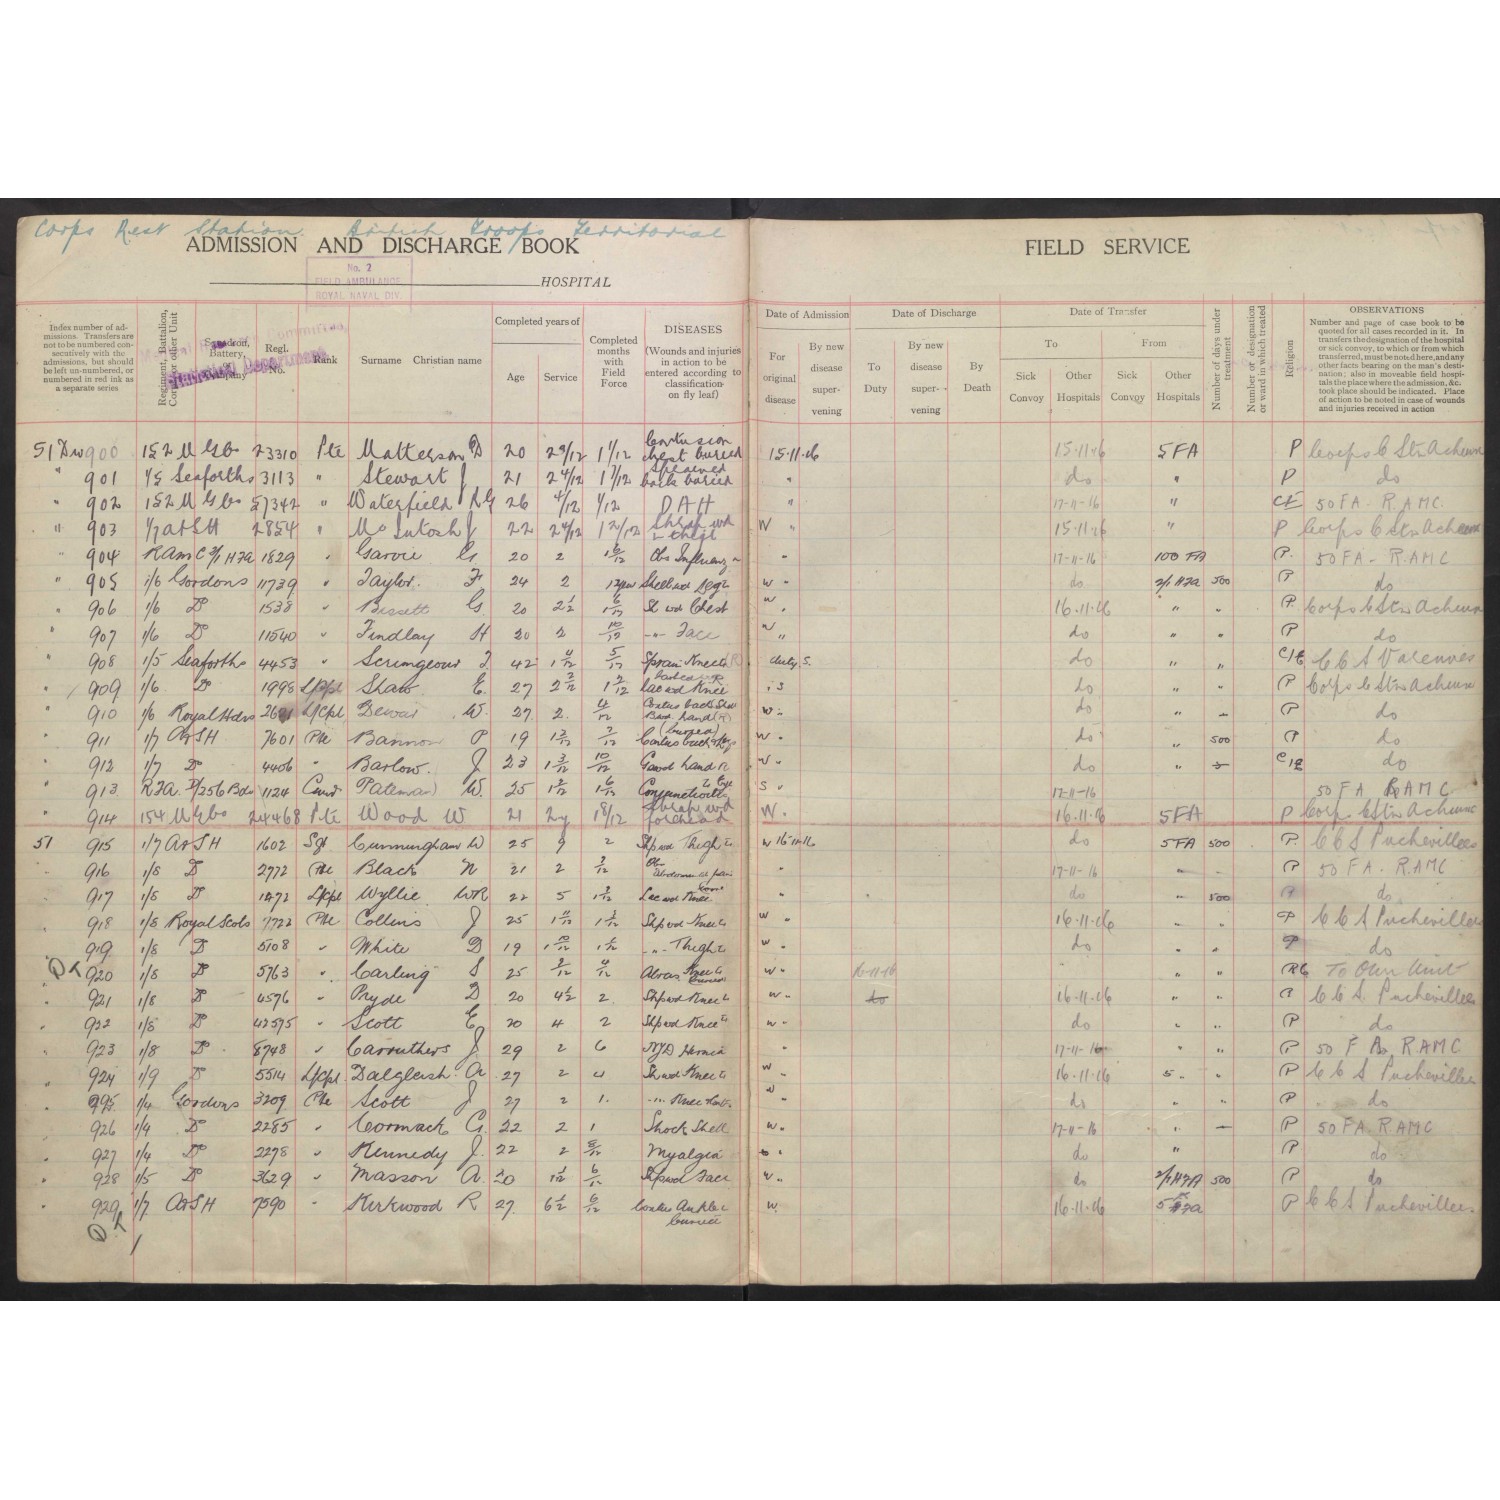 Corps Rest Station. British Troops Territorial
ADMISSION AND DISCHARGE BOOK
FIELD SERVICE
No. 2
FIELD AMBULANCE
ROYAL NAVAL DIV.
HOSPITAL
Index number of admissions. Transfers are not to be numbered consecutively with the admissions, but should be left un-numbered, or numbered in red ink as a separate series
Regiment, Battalion, Corps or other Unit
Squadron, Battery, or Company
Regl. No.
Rank
Surname Christian name
Completed years of
Age
Service
Completed months with Field Force
DISEASES
(Wounds and injuries in action to be entered according to classification on fly leaf)
Date of Admission
For original disease
By new disease supervening
Date of Discharge
To Duty
By new disease supervening
By Death
Date of Transfer
To
From
Sick Convoy
Other Hospitals
Sick Convoy
Other Hospitals
Number of days under treatment
Number or designation or ward in which treated
Religion
OBSERVATIONS
Number and page of case book to be quoted for all cases recorded in it. In transfers the designation of the hospital or sick convoy, to which or from which transferred, must be noted here, and any other facts bearing on the man's destination; also in moveable field hospitals the place where the admission, &c. took place should be indicated. Place of action to be noted in case of wounds and injuries received in action
51 Div 900 152 M G Co 23310 Pte Matterson D 20 2 9/12 1 1/12 Contusion chest buried 15.11.16 15.11.16 5 FA P Corps C Stn Acheux
" 901 1/5 Seaforths 3113 " Stewart J 21 2 4/12 1 7/12 Sprained back buried " do " P do
" 902 152 M G Co 57342 " Waterfield R G 26 4/12 1/12 DAH " 17-11-16 " CE 50 FA. RAMC.
" 903 1/7 A&SH 2854 " McIntosh J 22 2 4/12 Shrap wd thigh W " 15.11.16 " P Corps C Stn Acheux
" 904 RAMC 2/1 HFA 1829 " Garvie G 20 2 1 6/12 Obs Influenza " 17-11-16 100 FA P. 50 FA - RAMC
" 905 1/6 Gordons 11739 " Taylor. F 24 2 Shell wd Leg W " do 2/1 HFA 500 P do
" 906 1/6 Do 1538 " Bissett G 20 2 1/2 1 6/12 Sl wd Chest W " 16.11.16 " " P. Corps C Stn Acheux
" 907 1/6 Do 11540 " Findlay H 20 2 10/12 -"- Face W " do " " P do
" 908 1/5 Seaforths 4453 " Scrimgeour 42 1 4/12 5/12 Sprain Knee duty. S. do " " C/E C C S Varennes
" 909 1/6 Do 1998 L/Cpl Shaw E. 27 2 2/12 1 2/12 Lac wd Knee do " " P Corps C Stn Acheux
" 910 1/6 Royal Hdrs L/Cpl Dewar W. 27. 2. 4/12 W " do " P do
" 911 1/7 A&SH 7601 Pte Bannon P 19 1 3/12 2/12 (buried) W " do " 500 P do
" 912 1/7 Do 4406 " Barlow. J 23 1 3/12 10/12 hand R W " do " C/E do
" 913 RFA. D/256 Bde 1124 Pateman W. 25 1 2/12 1 6/12 Conjunctivitis Eye S " 17-11-16 50 FA RAMC
" 914 154 M G Co 24468 Pte Wood W 21 2y 8/12 Shrap wd forehead W. 16.11.16 5 FA P Corps C Stn Acheux
51 915 1/7 A&SH 1602 Sgt Cunningham W 25 9 2 Shp wd Thigh W 16-11-16 do 5 FA 500 P. C C S Puchevillers
916 1/8 Do 2772 Pte Black N 21 2 3/12 Abdominal pain " 17-11-16 " P 50 FA. RAMC
" 917 1/8 Do 1272 L/Cpl Wyllie WR 22 5 1 2/12 Lac wd Knee " do " 500 P do
" 918 1/8 Royal Scots 7722 Pte Collins J 25 1 11/12 Shp wd Knee W " 16-11-16 " " P C C S Puchevillers
" 919 1/8 Do 5108 " White D 19 1 10/12 -"- Thigh W " do " " P do
" 920 1/8 Do 5763 " Carling S 25 2/12 4/12 Abras Knee buried W " 16-11-16 " " RC To Own Unit
" 921 1/8 Do 4576 " Pryde D 20 4 1/2 2. Shp wd Knee W " do 16-11-16 " " P C C S. Puchevillers
" 922 1/8 Do 42595 " Scott E 20 4 2 Shp wd Knee W " do " " P do
" 923 1/8 Do 8748 " Carruthers J 29 2 6 NYD Hernia 17-11-16 " " P 50 F A. RAMC
" 924 1/9 Do 5514 L/Cpl Dalgleish A 27 2 4 Sh wd Knee W " 16-11-16 5 " " P C C S Puchevillers
" 925 1/4 Gordons 3209 Pte Scott J 27 2 1. -"- Knee W " do " " P do
" 926 1/4 Do 2285 " Cormack G. 22 2 1 Shock Shell W. 17-11-16 " P 50 FA. RAMC
" 927 1/4 Do 2278 " Kennedy J. 22 2 Myalgia do " P do
" 928 1/5 Do 3629 " Masson A. 20 Shp wd Face W " do 2/1 HFA 500 P do
" 929 1/7 A&SH 7590 " Kirkwood R 27 6 1/2 6/12 Contus Ankle buried W. 16-11-16 P C C S Puchevillers